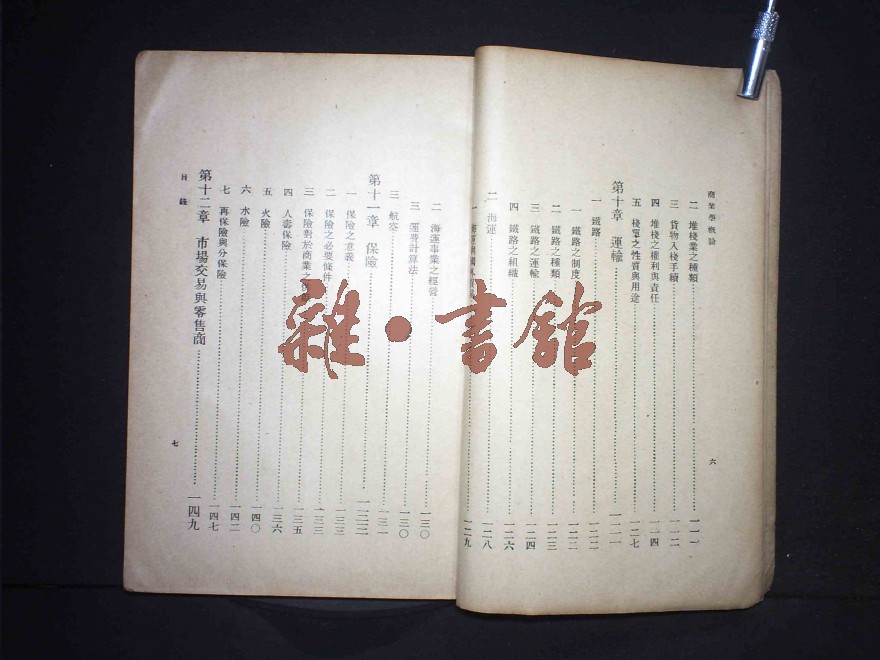 商業學概論
二 堆棧業之種類……一一一
三 貨物入棧手續……一一二
四 堆棧之權利與責任……一一四
五 棧單之性質與用途……一一七
第十章 運輸……一二一
一 鐵路……一二二
1 鐵路之制度……一二二
2 鐵路之種類……一二三
三 鐵路之運輸……一二四
四 鐵路之組織……一二六
二 海運……一二八
一二九
六
二 海運事業之經營……一三〇
三 運費計算法……一三〇
三 航空……一三一
第十一章 保險……一三三
一 保險之意義……一三三
二 保險之必要條件……一三三
三 保險對於商業之……一三五
四 人壽保險……一三六
五 火險……一四〇
六 水險……一四二
七 再保險與分保險……一四七
第十二章 市場交易與零售商……一四九
目錄
七
雜·書館